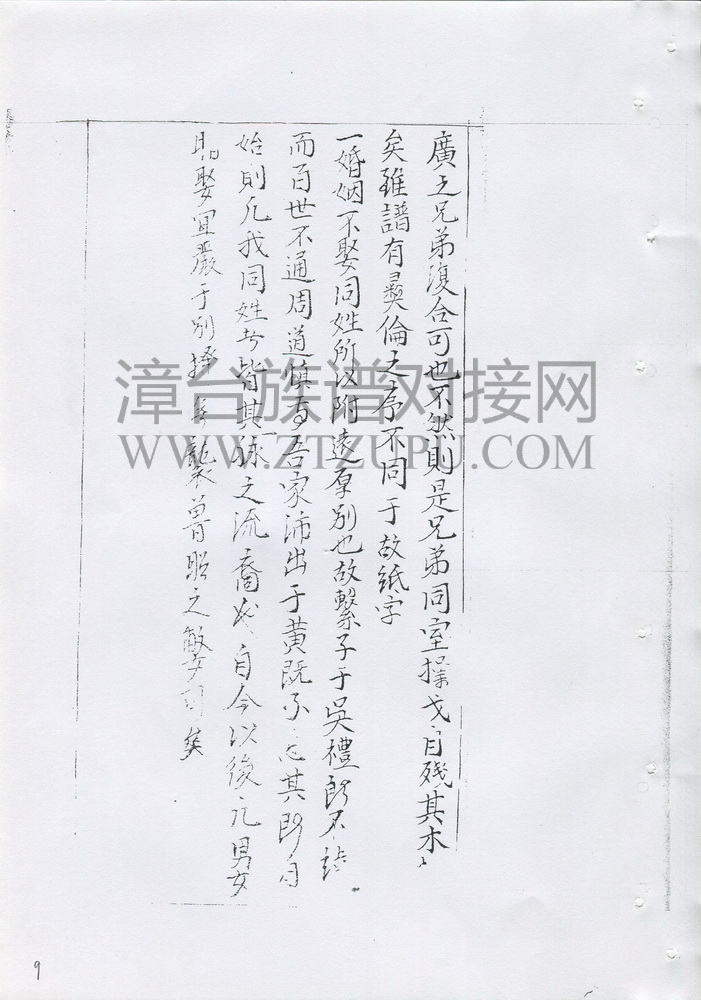 廣之兄弟復合可也不然則是兄弟同室操戈自殘其木
矣雖譜有彝倫之序不同于故紙字
一婚姻不娶同姓所以附遠厚別也故繫子于吳禮所不諱
而百世不通周道慎焉吾家沛出于黃既不忘其所自
始則凡我同姓者皆其一脉之流裔 自今以後凡男女
娶宜嚴于別擇 襲曽 之弊 矣
漳台族谱对接网
WWW.ZTZUPU.COM
9